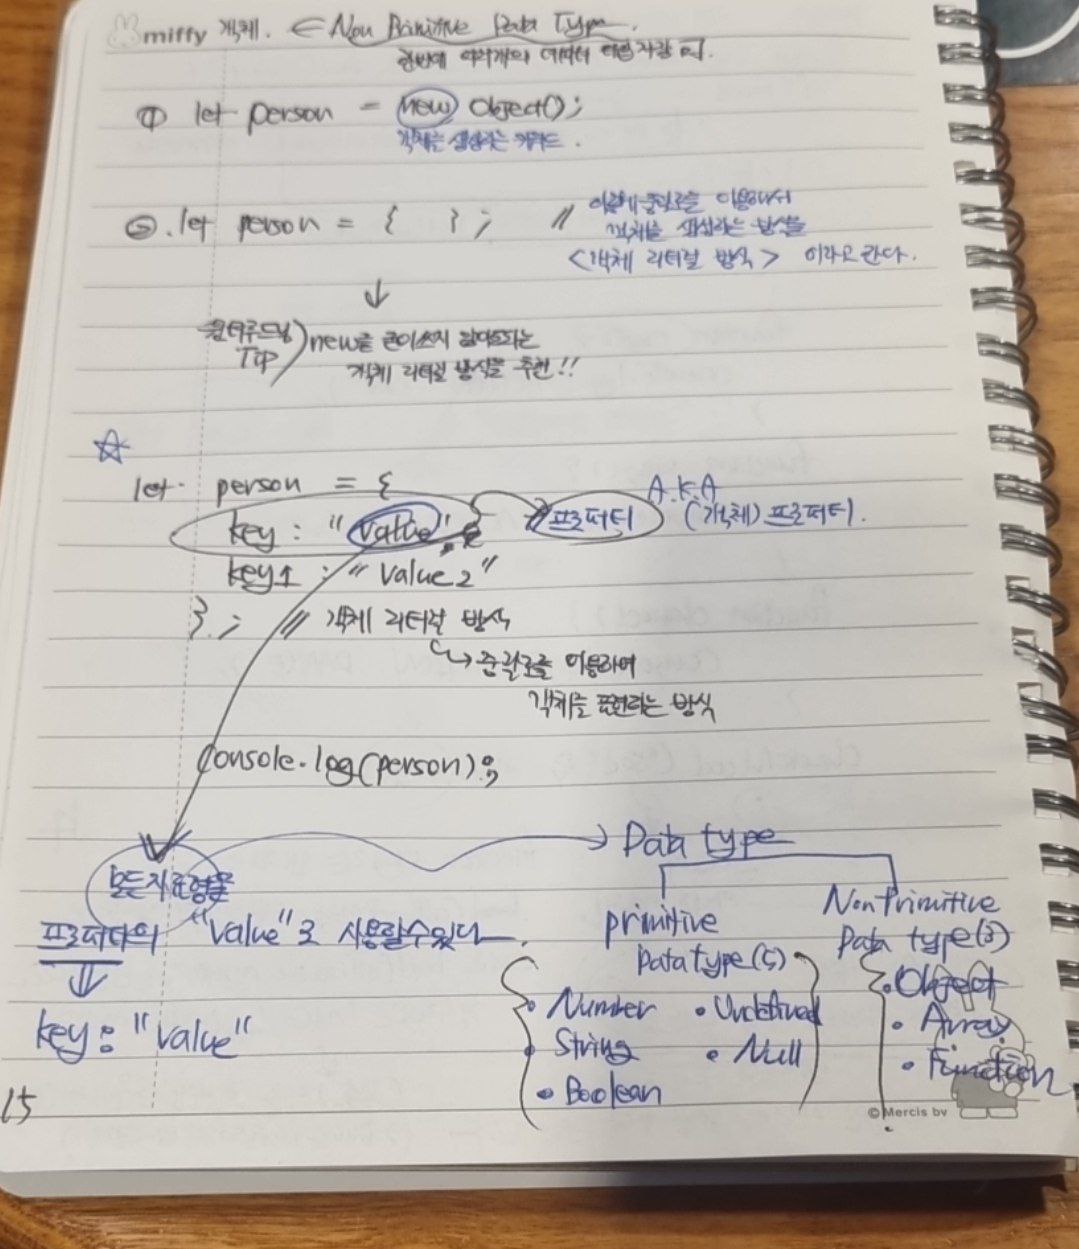 miffy 객체. ← Non Primitive Data Type.
한번에 여러개의 데이터 저장
① let person = new Object();
객체를 생성하는 키워드.
②. let person = { } ; // 이렇게 중괄호를 이용해서
객체를 생성하는 방식을
<객체 리터럴 방식> 이라고 한다.
↓
Tip) new를 굳이쓰지 않아도되는
객체 리터럴 방식을 추천!!
☆
let person = {
key : "value", → 프로퍼티 A.K.A (객체) 프로퍼티.
key1 : "value2"
} ; // 객체 리터럴 방식
↳ 중괄호를 이용하여
객체를 표현하는 방식
console.log(person);
모든자료형을 → Data type
프로퍼티의 "value"로 사용할수있다.
⇓
key : "value"
primitive
Data type(5)
• Number • Undefined
• String • Null
• Boolean
Non Primitive
Data type(3)
• Object
• Array
• Function
15
© Mercis bv